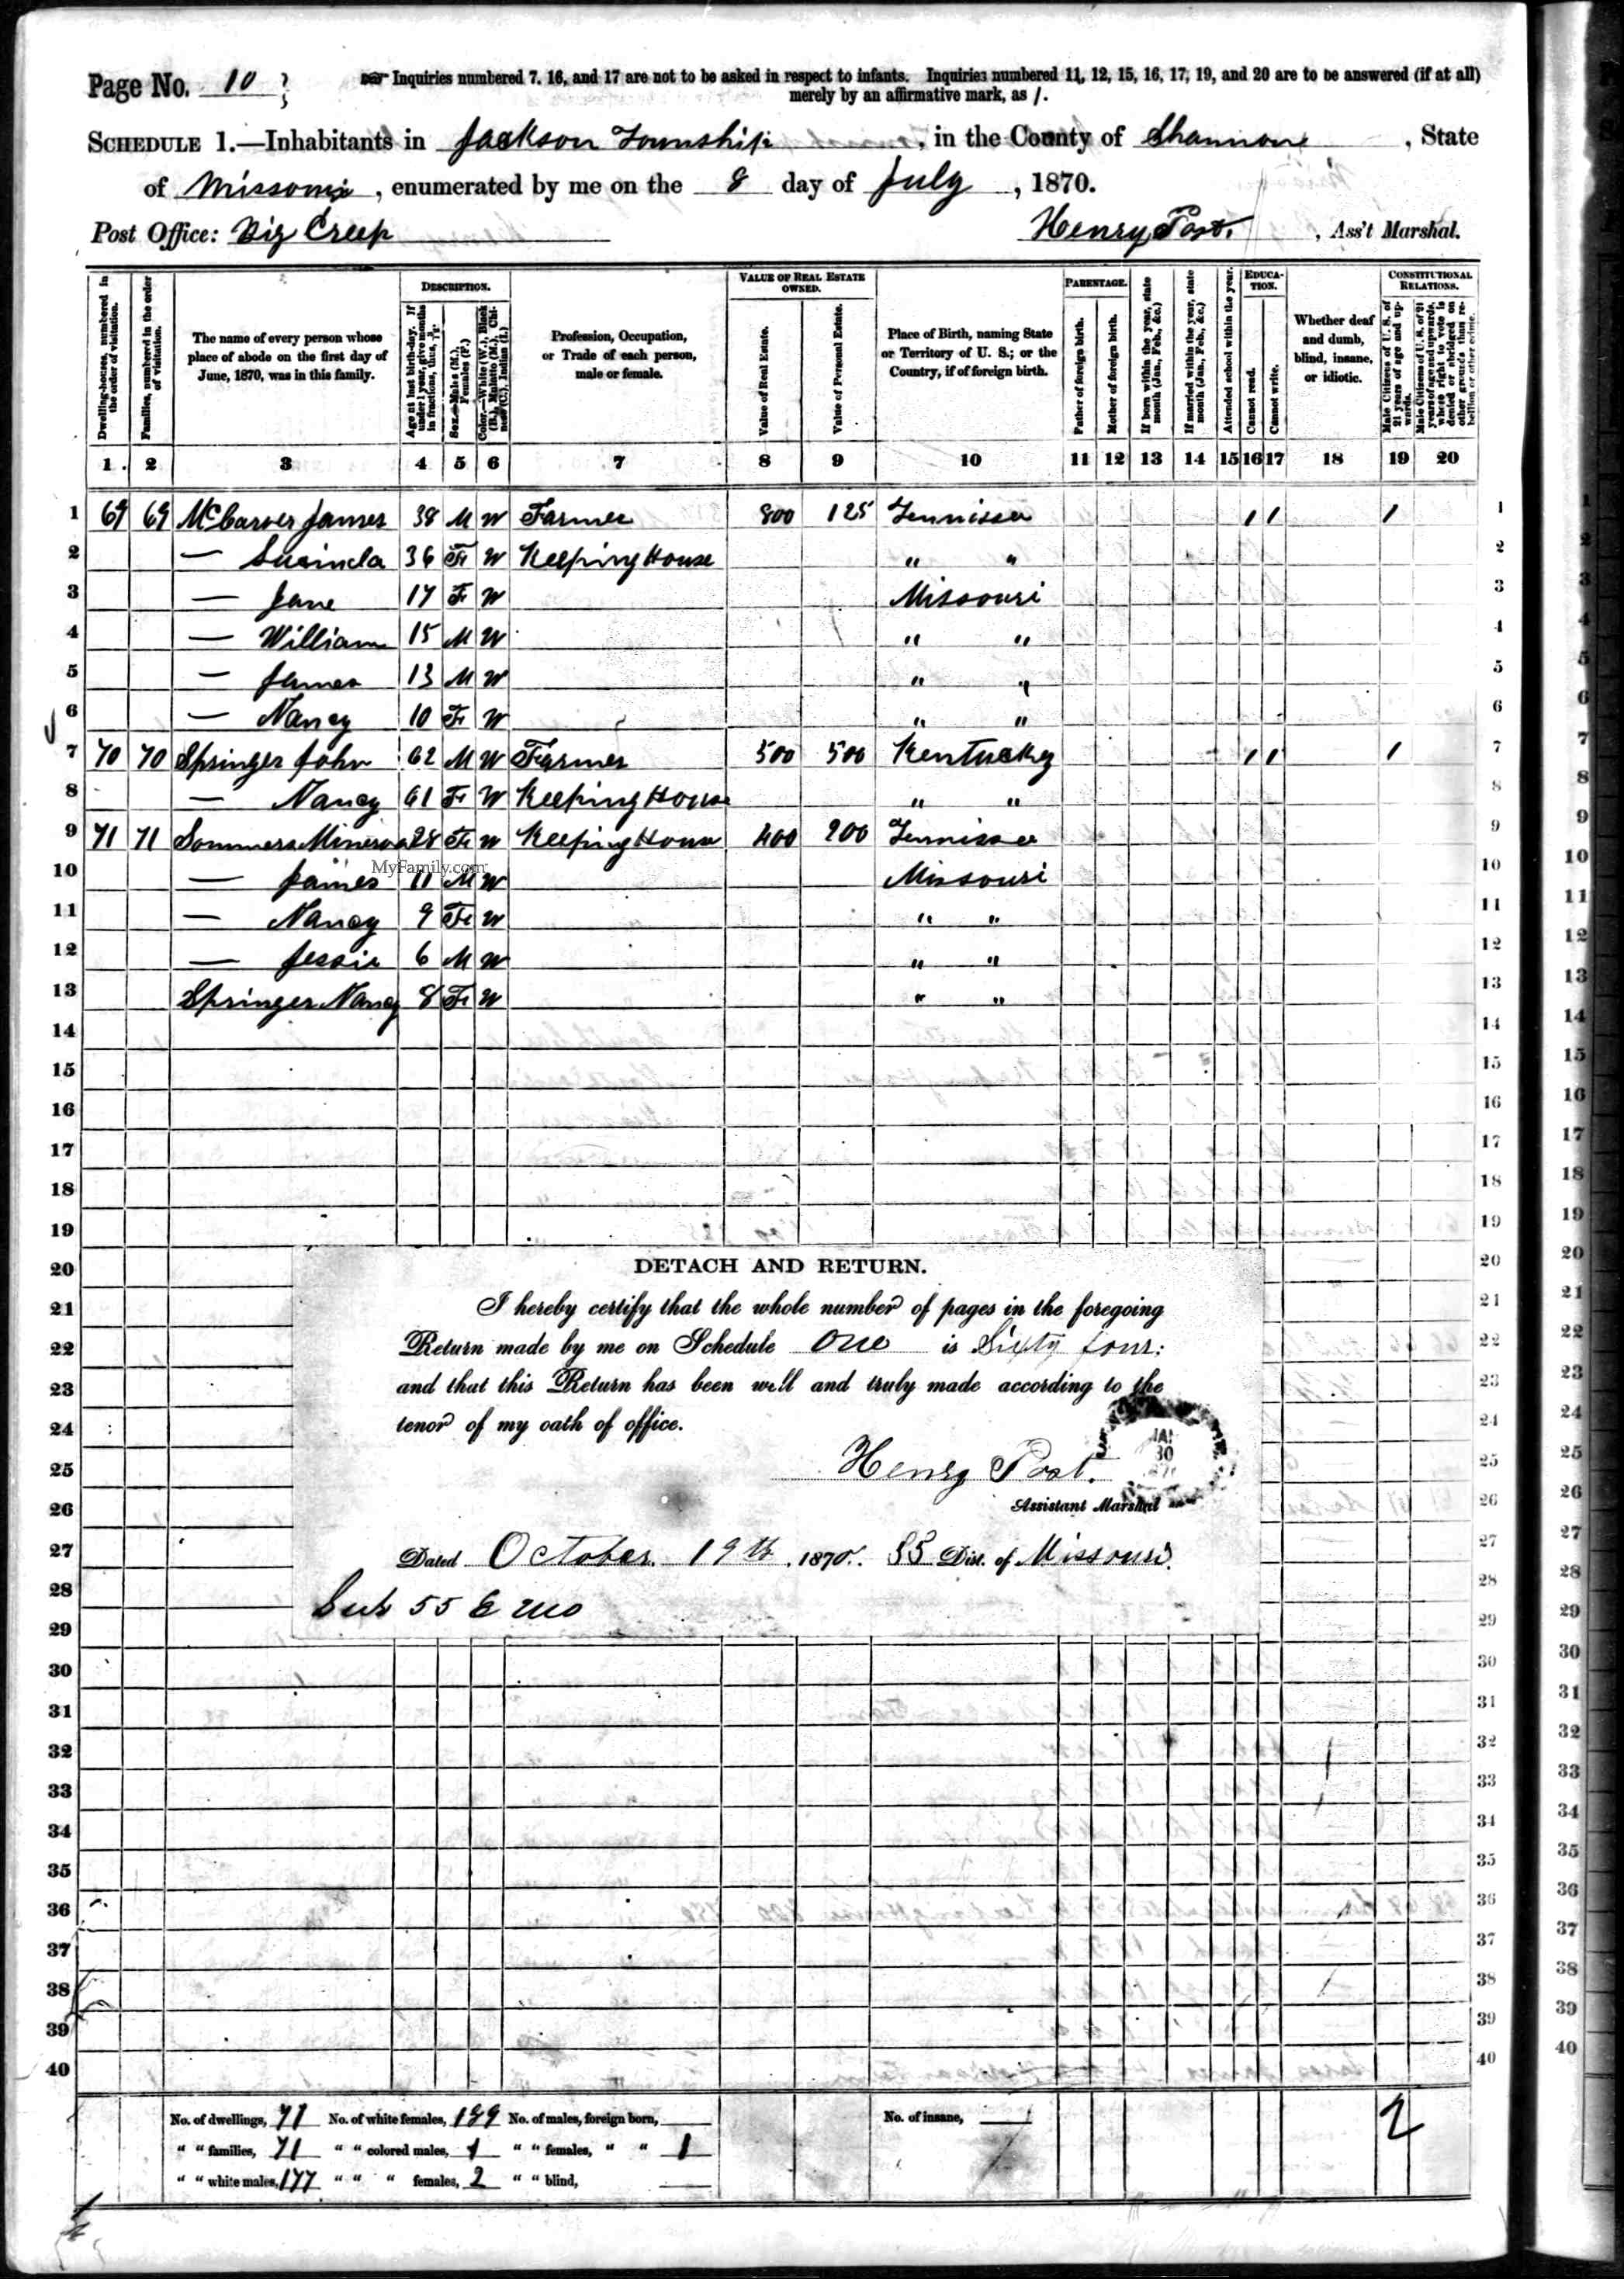 Page No. 10
Inquiries numbered 7, 16, and 17 are not to be asked in respect to infants. Inquiries numbered 11, 12, 15, 16, 17, 19, and 20 are to be answered (if at all)
merely by an affirmative mark, as /.
SCHEDULE 1.—Inhabitants in Jackson Township, in the County of Shannon, State
of Missouri, enumerated by me on the 8 day of July, 1870.
Post Office: Big Creek
Henry Post, Ass't Marshal.
Dwelling-houses, numbered in the order of visitation.
Families, numbered in the order of visitation.
The name of every person whose place of abode on the first day of June, 1870, was in this family.
DESCRIPTION.
Age at last birth-day. If under 1 year, give months in fractions, thus, 3/12.
Sex.—Males (M.), Females (F.)
Color.—White (W.), Black (B.), Mulatto (M.), Chinese (C.), Indian (I.)
Profession, Occupation, or Trade of each person, male or female.
VALUE OF REAL ESTATE OWNED.
Value of Real Estate.
Value of Personal Estate.
Place of Birth, naming State or Territory of U. S.; or the Country, if of foreign birth.
PARENTAGE.
Father of foreign birth.
Mother of foreign birth.
If born within the year, state month (Jan., Feb., &c.)
If married within the year, state month (Jan., Feb., &c.)
Attended school within the year.
EDUCATION.
Cannot read.
Cannot write.
Whether deaf and dumb, blind, insane, or idiotic.
CONSTITUTIONAL RELATIONS.
Male Citizens of U. S. of 21 years of age and upwards.
Male Citizens of U. S. of 21 years of age and upwards, whose right to vote is denied or abridged on other grounds than rebellion or other crime.
1 2 3 4 5 6 7 8 9 10 11 12 13 14 15 16 17 18 19 20
1 69 69 McCarver James 38 M W Farmer 800 125 Tennissee / / / 1
2 — Lucinda 36 F W Keeping House " " 2
3 — Jane 17 F W Missouri 3
4 — William 15 M W " " 4
5 — James 13 M W " " 5
6 — Nancy 10 F W " " 6
7 70 70 Springer John 62 M W Farmer 500 500 Kentucky / / / 7
8 — Nancy 61 F W Keeping House " " 8
9 71 71 Sommers Minerva 28 F W Keeping House 400 200 Tennissee 9
MyFamily.com
10 — James 11 M W Missouri 10
11 — Nancy 9 F W " " 11
12 — Jessie 6 M W " " 12
13 Springer Nancy 8 F W " " 13
14 14
15 15
16 16
17 17
18 18
19 19
20 20
21 21
22 22
23 23
24 24
25 25
26 26
27 27
28 28
29 29
DETACH AND RETURN.
I hereby certify that the whole number of pages in the foregoing
Return made by me on Schedule One is Sixty four:
and that this Return has been well and truly made according to the
tenor of my oath of office.
Henry Post.
30
Assistant Marshal
Dated October 19th 1870. 55 Dist. of Missouri.
Sub 55 E Mo
30 30
31 31
32 32
33 33
34 34
35 35
36 36
37 37
38 38
39 39
40 40
No. of dwellings, 71 No. of white females, 189 No. of males, foreign born, No. of insane, 2
" " families, 71 " " colored males, 1 " " females, " " 1
" " white males, 177 " " " females, 2 " " blind,